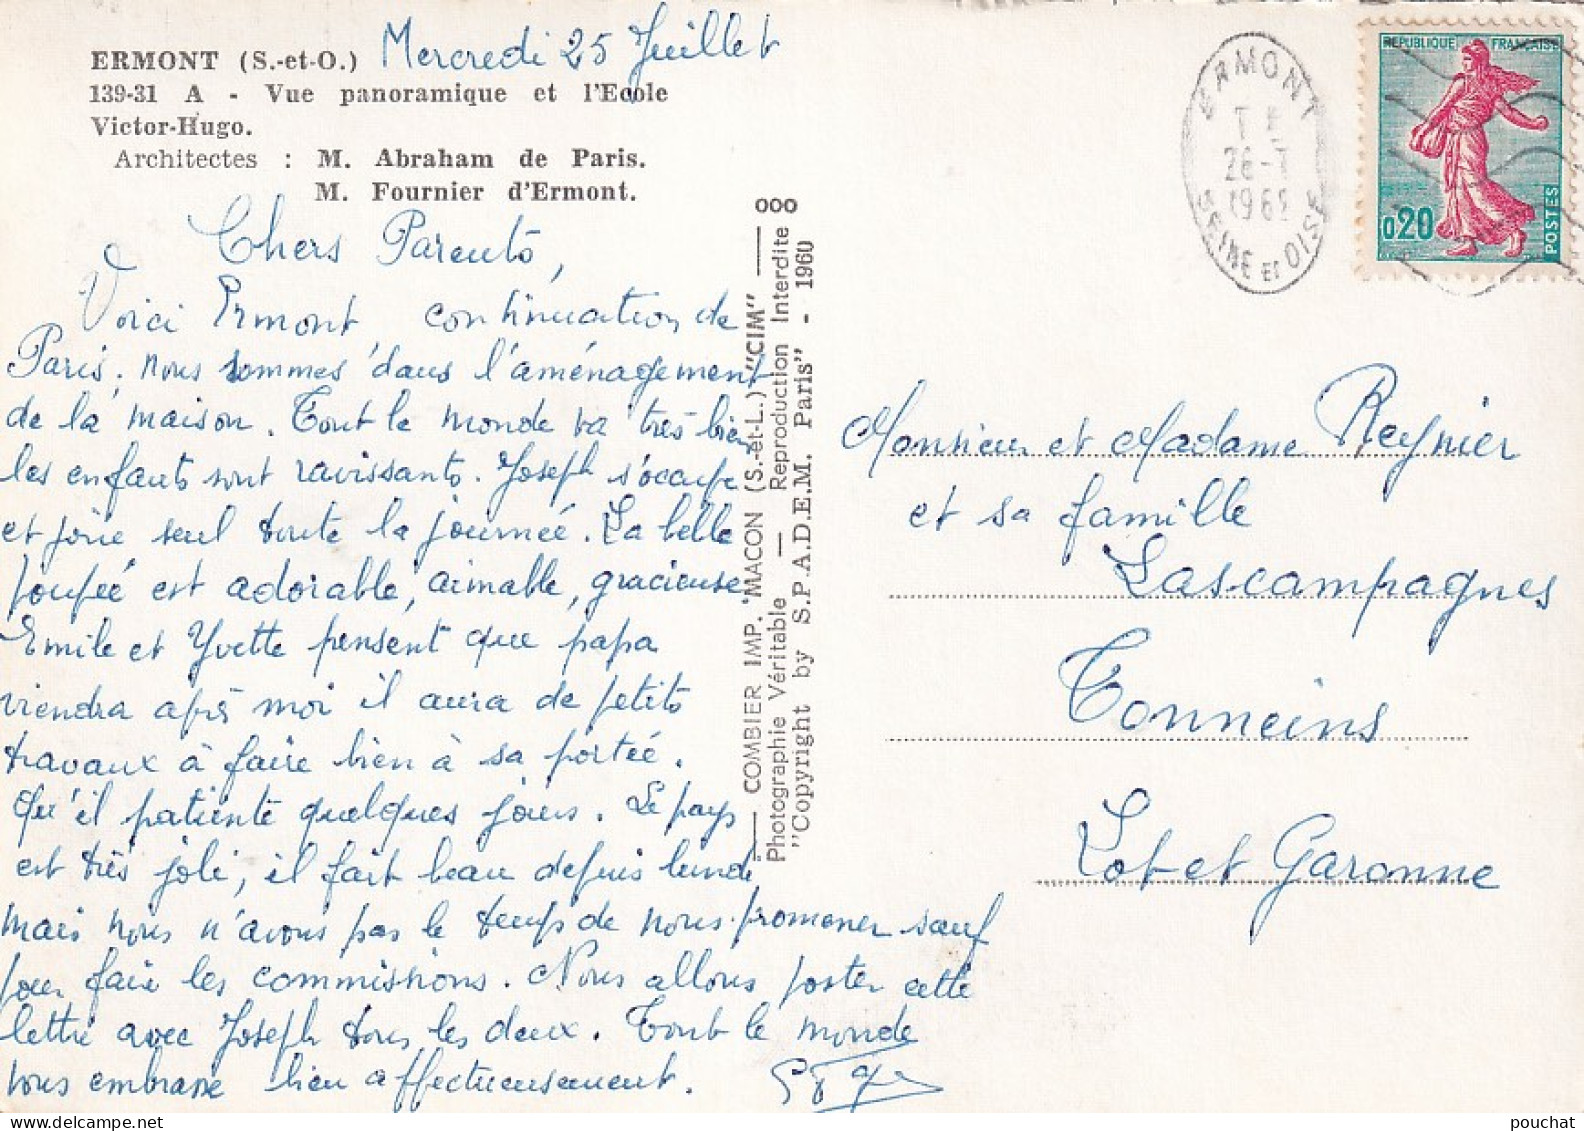 Mercredi 25 Juillet
ERMONT (S.-et-O.)
139-31 A - Vue panoramique et l'Ecole
Victor-Hugo.
Architectes : M. Abraham de Paris.
M. Fournier d'Ermont.
Chers Parents,
Voici Ermont continuation de
Paris, nous sommes dans l'aménagement
de la maison. Tout le monde va très bien
les enfants sont ravissants. Joseph s'occupe
et joue seul toute la journée. La belle
poupée est adorable, aimable, gracieuse
Emile et Yvette pensent que papa
viendra après moi il aura de petits
travaux à faire bien à sa portée.
Qu'il patiente quelques jours. Le pays
est très joli, il fait beau depuis lundi
mais nous n'avons pas le temps de nous promener sauf
pour faire les commissions. Nous allons poster cette
lettre avec Joseph tous les deux. Tout le monde
vous embrasse bien affectueusement.
COMBIER IMP. MACON (S.-et-L.) "CIM"
Photographie Véritable — Reproduction Interdite
"Copyright by S.P.A.D.E.M. Paris" - 1960
ERMONT
26-7
196
SEINE ET OISE
REPUBLIQUE FRANÇAISE
0,20
POSTES
Monsieur et Madame Reynier
et sa famille
Lascampagnes
Tonneins
Lot et Garonne
pouchat